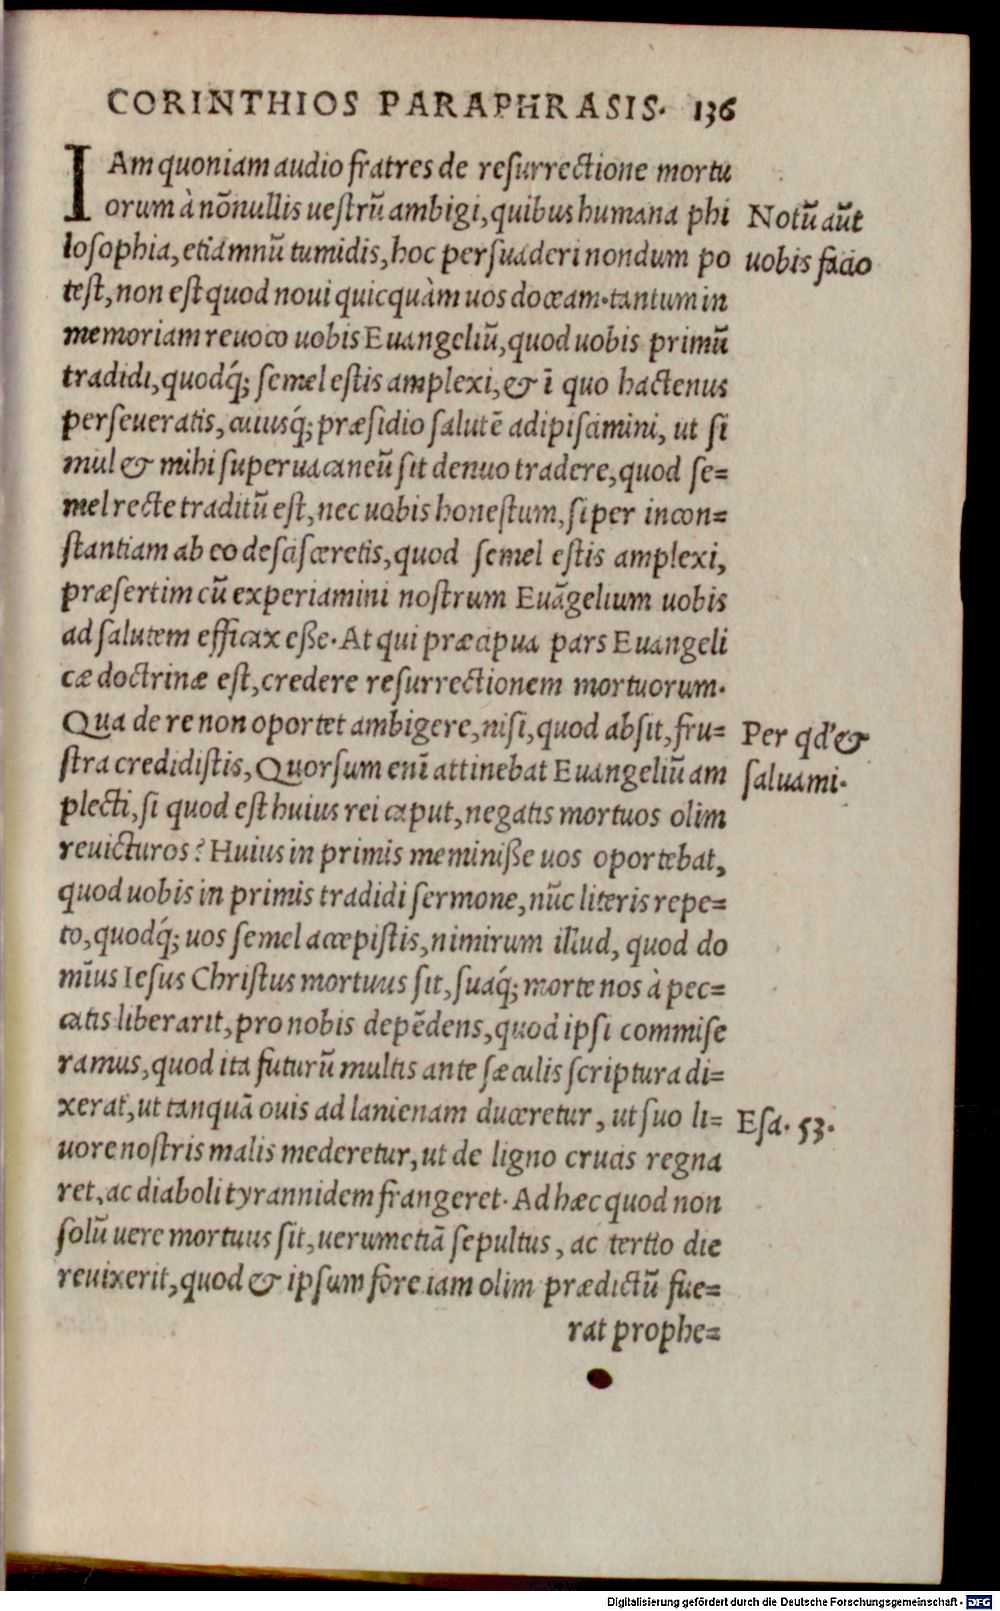 CORINTHIOS PARAPHRASIS. 136
IAm quoniam audio fratres de resurrectione mortu
orum à nõnullis uestrũ ambigi, quibus humana phi
losophia, etiamnũ tumidis, hoc persuaderi nondum po
test, non est quod noui quicquàm uos doceam. tantum in
memoriam reuoco uobis Euangeliũ, quod uobis primũ
tradidi, quodq́; semel estis amplexi, & ĩ quo hactenus
perseueratis, cuiusq́; præsidio salutẽ adipiscimini, ut si
mul & mihi superuacaneũ sit denuo tradere, quod se=
mel recte traditũ est, nec uobis honestum, si per incon=
stantiam ab eo descisceretis, quod semel estis amplexi,
præsertim cũ experiamini nostrum Euãgelium uobis
ad salutem efficax eße. At qui præcipua pars Euangeli
cæ doctrinæ est, credere resurrectionem mortuorum.
Qua de re non oportet ambigere, nisi, quod absit, fru=
stra credidistis, Quorsum enĩ attinebat Euangeliũ am
plecti, si quod est huius rei caput, negatis mortuos olim
reuicturos? Huius in primis meminiße uos oportebat,
quod uobis in primis tradidi sermone, nũc literis repe=
to, quodq́; uos semel accepistis, nimirum illud, quod do
mĩus Iesus Christus mortuus sit, suaq́; morte nos à pec=
catis liberarit, pro nobis depẽdens, quod ipsi commise
ramus, quod ita futurũ multis ante sæculis scriptura di=
xerat, ut tanquã ouis ad lanienam duceretur, ut suo li=
uore nostris malis mederetur, ut de ligno crucis regna
ret, ac diaboli tyrannidem frangeret. Ad hæc quod non
solũ uere mortuus sit, uerumetiã sepultus, ac tertio die
reuixerit, quod & ipsum fore iam olim prædictũ fue=
rat prophe=
Notũ aũt
uobis facio
Per qd' &
saluami.
Esa. 53.
Digitalisierung gefördert durch die Deutsche Forschungsgemeinschaft - DFG